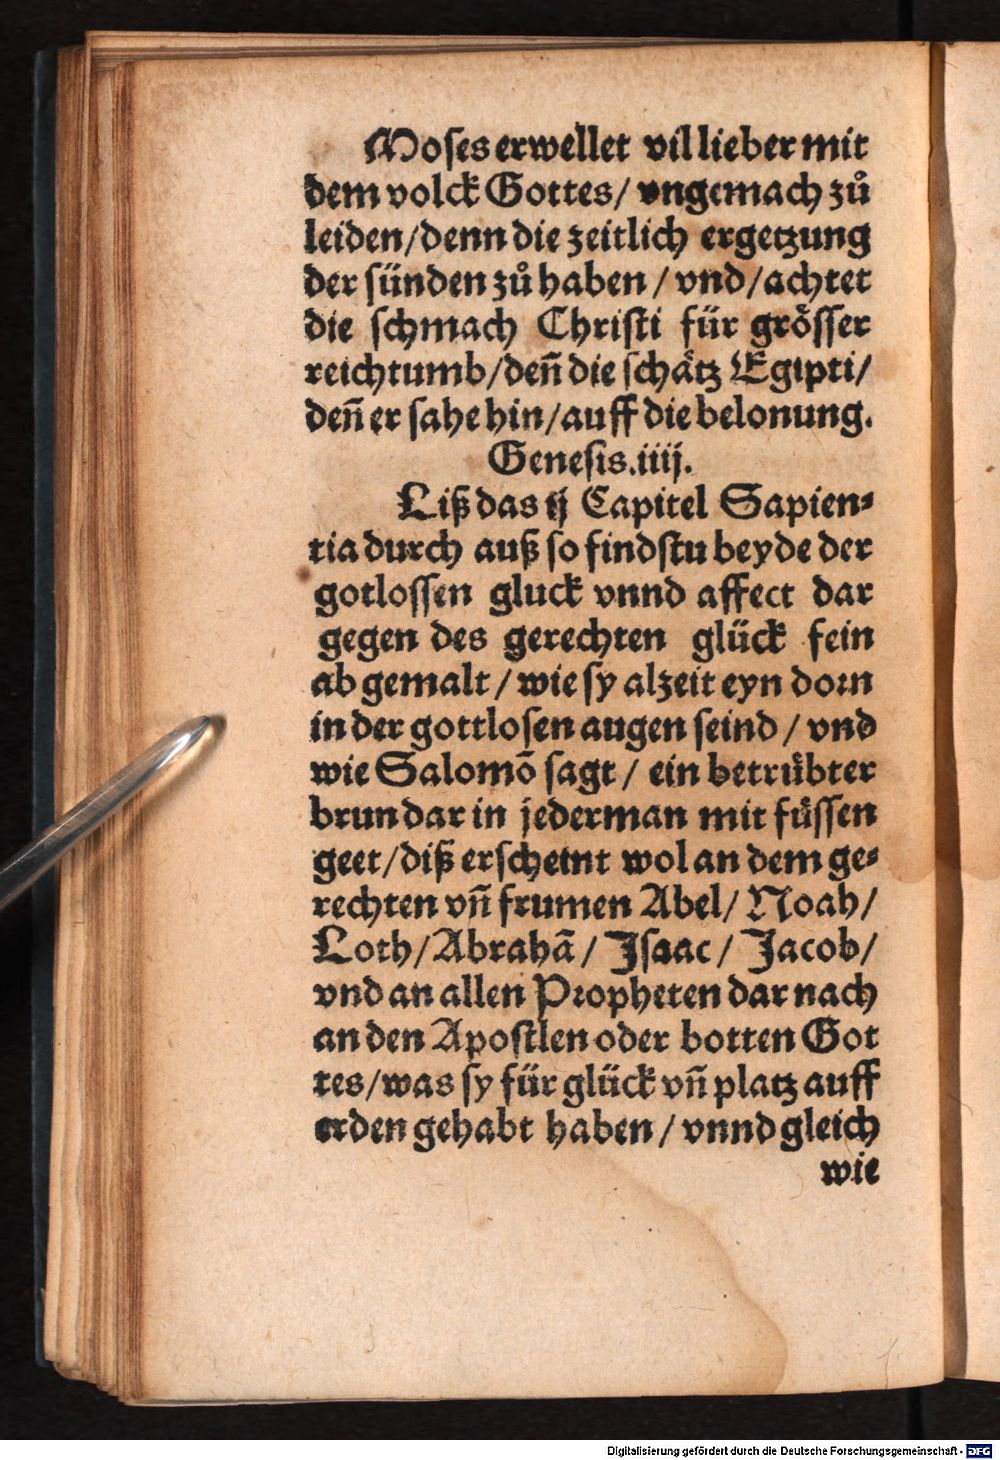 Moses erwellet vil lieber mit
dem volck Gottes/ vngemach zů
leiden/denn die zeitlich ergetzung
der sünden zů haben/ vnd/achtet
die schmach Christi für grösser
reichtumb/deñ die schätz Egipti/
deñ er sahe hin/auff die belonung.
Genesis.iiij.
Liß das ij Capitel Sapien-
tia durch auß so findstu beyde der
gotlossen gluck vnnd affect dar
gegen des gerechten glück fein
ab gemalt/ wie sy alzeit eyn dorn
in der gottlosen augen seind/ vnd
wie Salomō sagt/ ein betrübter
brun dar in jederman mit füssen
geet/diß erscheint wol an dem ge-
rechten vñ frumen Abel/ Noah/
Loth/Abrahā/ Isaac/ Jacob/
vnd an allen Propheten dar nach
an den Apostlen oder botten Got
tes/was sy für glück vñ platz auff
erden gehabt haben/ vnnd gleich
wie
Digitalisierung gefördert durch die Deutsche Forschungsgemeinschaft - DFG